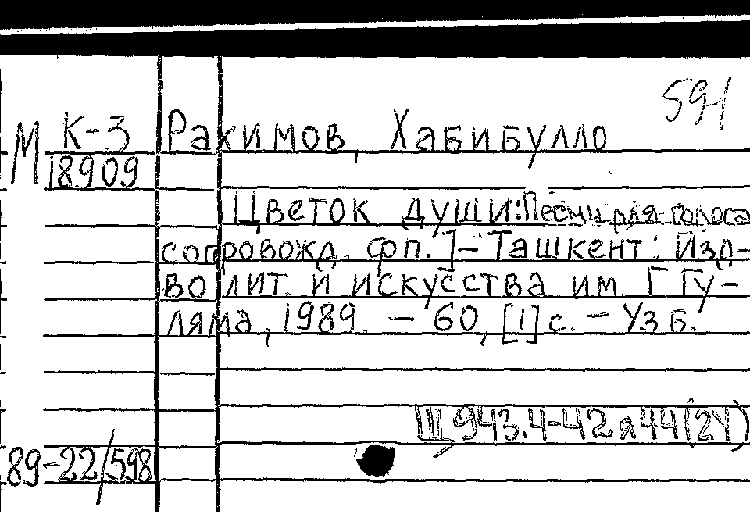 591
М К-3 Рахимов, Хабибулло
18909
Цветок души: Песни для голоса
сопровожд. фп.] - Ташкент: Изд-
во лит. и искусства им Г Гу-
ляма, 1989. - 60, [1] с. - Узб.
Щ 943.4-42 я44(2У)
89-22/598